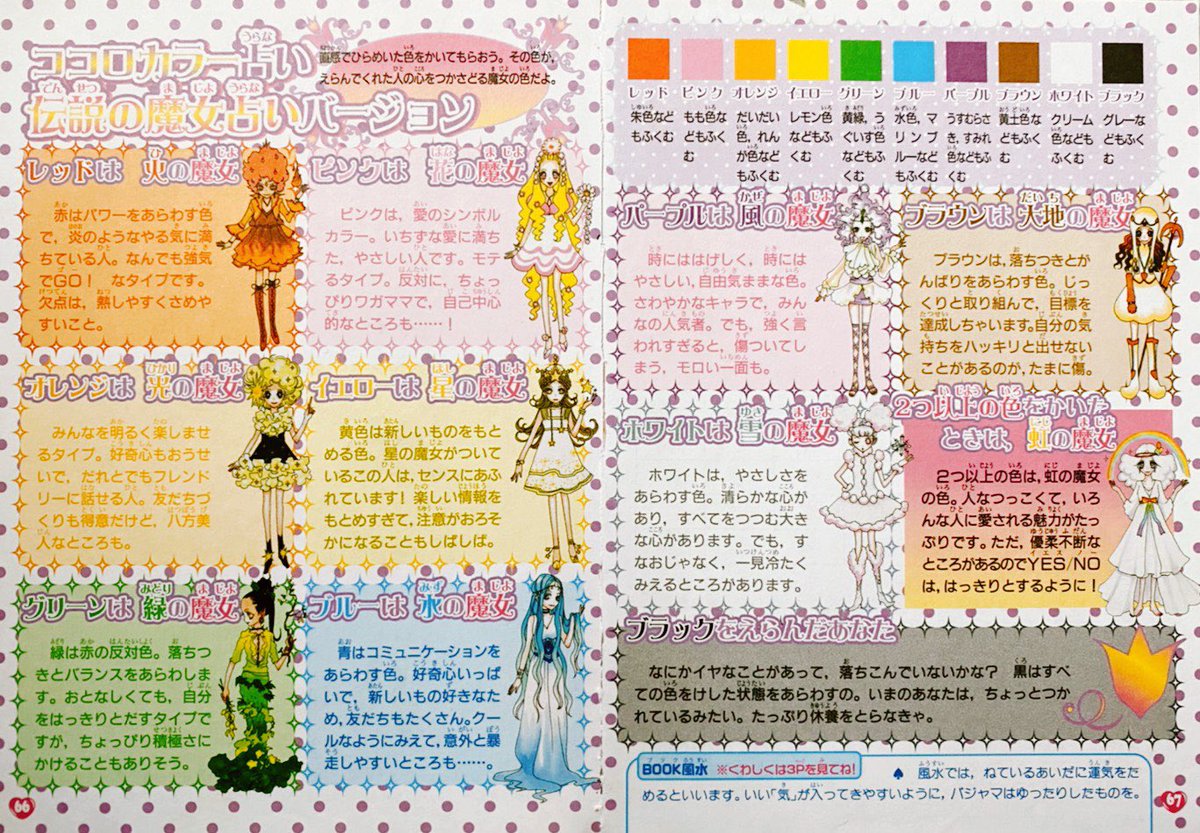 ココロカラー占い
伝説の魔女占いバージョン
直感でひらめいた色をかいてもらおう。その色が、
えらんでくれた人の心をつかさどる魔女の色だよ。
レッドは 火の魔女
赤はパワーをあらわす色
で、炎のようなやる気に満
ちている人。なんでも強気
でGO! なタイプです。
欠点は、熱しやすくさめや
すいこと。
ピンクは 花の魔女
ピンクは、愛のシンボル
カラー。いちずな愛に満ち
た、やさしい人です。モテ
るタイプ。反対に、ちょっ
ぴりワガママで、自己中心
的なところも……!
オレンジは 光の魔女
みんなを明るく楽しませ
るタイプ。好奇心もおうせ
いで、だれとでもフレンド
リーに話せる人。友だちづ
くりも得意だけど、八方美
人なところも。
イエローは 星の魔女
黄色は新しいものをもと
める色。星の魔女がついて
いるこの人は、センスにあふ
れています! 楽しい情報を
もとめすぎて、注意がおろそ
かになることもしばしば。
グリーンは 緑の魔女
緑は赤の反対色。落ちつ
きとバランスをあらわしま
す。おとなしくても、自分
をはっきりとだすタイプで
すが、ちょっぴり積極さに
かけることもありそう。
ブルーは 水の魔女
青はコミュニケーションを
あらわす色。好奇心いっぱ
いで、新しいもの好きなた
め、友だちもたくさん。クー
ルなようにみえて、意外と暴
走しやすいところも…。
66
レッド
朱色な
どもふく
む
ピンク
もも色な
どもふく
む
オレンジ
だいだい
色、れん
が色など
もふくむ
イエロー
レモン色
などもふ
くむ
グリーン
黄緑、う
ぐいす色
などもふ
くむ
ブルー
水色、マ
リンブ
ルーなど
もふくむ
パープル
うすむらさ
き、すみれ
色などもふ
くむ
ブラウン
黄土色な
どもふく
む
ホワイト
クリーム
色なども
ふくむ
ブラック
グレーな
どもふく
む
パープルは 風の魔女
時にははげしく、時には
やさしい、自由気ままな色。
さわやかなキャラで、みん
なの人気者。でも、強く言
われすぎると、傷ついてし
まう、モロい一面も。
ブラウンは 大地の魔女
ブラウンは、落ちつきとが
んばりをあらわす色。じっ
くりと取り組んで、目標を
達成しちゃいます。自分の気
持ちをハッキリと出せない
ことがあるのが、たまに傷。
ホワイトは 雪の魔女
ホワイトは、やさしさを
あらわす色。清らかな心が
あり、すべてをつつむ大き
な心があります。でも、す
なおじゃなく、一見冷たく
みえるところがあります。
2つ以上の色をかいた
ときは、虹の魔女
2つ以上の色は、虹の魔女
の色。人なつっこくて、いろ
んな人に愛される魅力がたっ
ぷりです。ただ、優柔不断な
ところがあるのでYES/NO
は、はっきりとするように!
ブラックをえらんだあなた
なにかイヤなことがあって、落ちこんでいないかな? 黒はすべ
ての色をけした状態をあらわすの。いまのあなたは、ちょっとつか
れているみたい。たっぷり休養をとらなきゃ。
BOOK風水 ※くわしくは3Pを見てね!
♠ 風水では、ねているあいだに運気をた
めるといいます。いい「気」が入ってきやすいように、パジャマはゆったりしたものを。
67